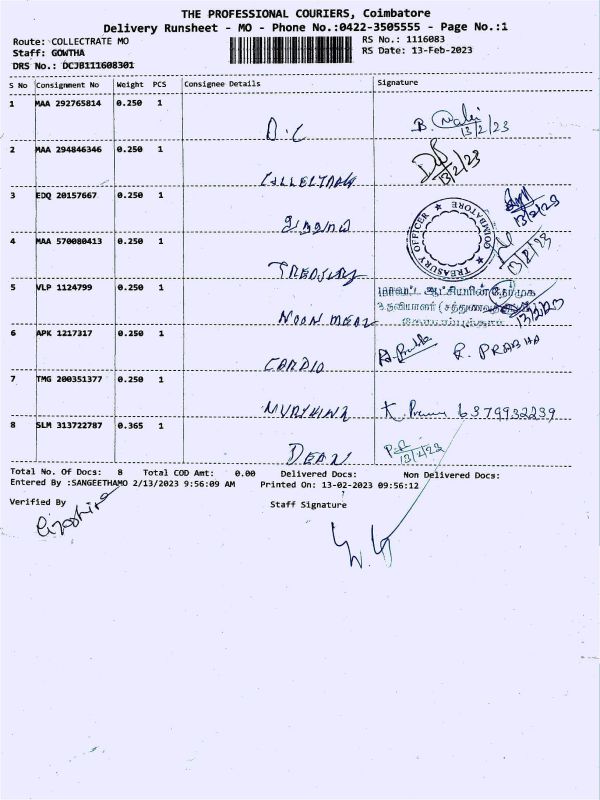 THE PROFESSIONAL COURIERS, Coimbatore
Delivery Runsheet - MO - Phone No.:0422-3505555 - Page No.:1
Route: COLLECTRATE MO
RS No.: 1116083
Staff: GOWTHA
RS Date: 13-Feb-2023
DRS No.: DCJB111608301
S No Consignment No Weight PCS Consignee Details Signature
1 MAA 292765814 0.250 1
D.C
13/2/23
2 MAA 294846346 0.250 1
13/2/23
3 EDQ 20157667 0.250 1
13/2/23
4 MAA 570080413 0.250 1
TREASURY OFFICER ★ COIMBATORE ★
13/2/23
5 VLP 1124799 0.250 1
NOON MEAL
மாவட்ட ஆட்சியரின் நேர்முக
13/2/23
6 APK 1217317 0.250 1
CARDIO
R. PRABHA
7 TMG 200351377 0.250 1
6379932239
8 SLM 313722787 0.365 1
DEAN
13/2/23
Total No. Of Docs: 8 Total COD Amt: 0.00 Delivered Docs: Non Delivered Docs:
Entered By :SANGEETHAMO 2/13/2023 9:56:09 AM Printed On: 13-02-2023 09:56:12
Verified By Staff Signature